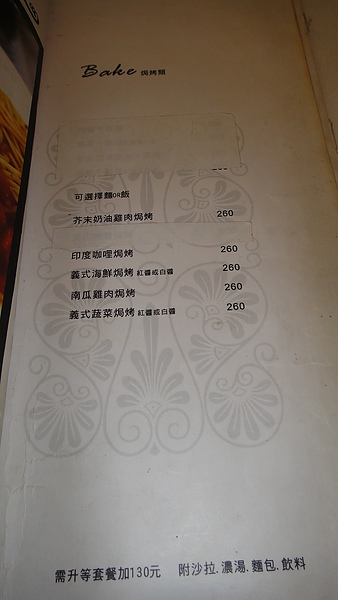 Bake 焗烤類
可選擇麵OR飯
芥末奶油雞肉焗烤 260
印度咖哩焗烤 260
義式海鮮焗烤 紅醬或白醬 260
南瓜雞肉焗烤 260
義式蔬菜焗烤 紅醬或白醬 260
需升等套餐加130元 附沙拉.濃湯.麵包.飲料